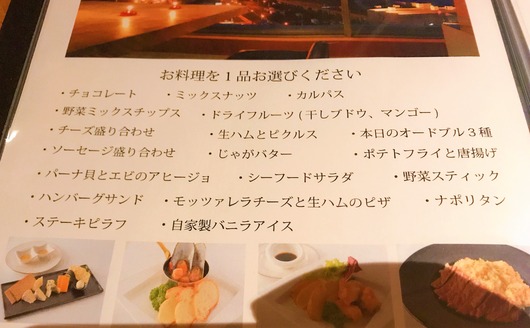 お料理を1品お選びください
・チョコレート ・ミックスナッツ ・カルパス
・野菜ミックスチップス ・ドライフルーツ(干しブドウ、マンゴー)
・チーズ盛り合わせ ・生ハムとピクルス ・本日のオードブル3種
・ソーセージ盛り合わせ ・じゃがバター ・ポテトフライと唐揚げ
・パーナ貝とエビのアヒージョ ・シーフードサラダ ・野菜スティック
・ハンバーグサンド ・モッツァレラチーズと生ハムのピザ ・ナポリタン
・ステーキピラフ ・自家製バニラアイス